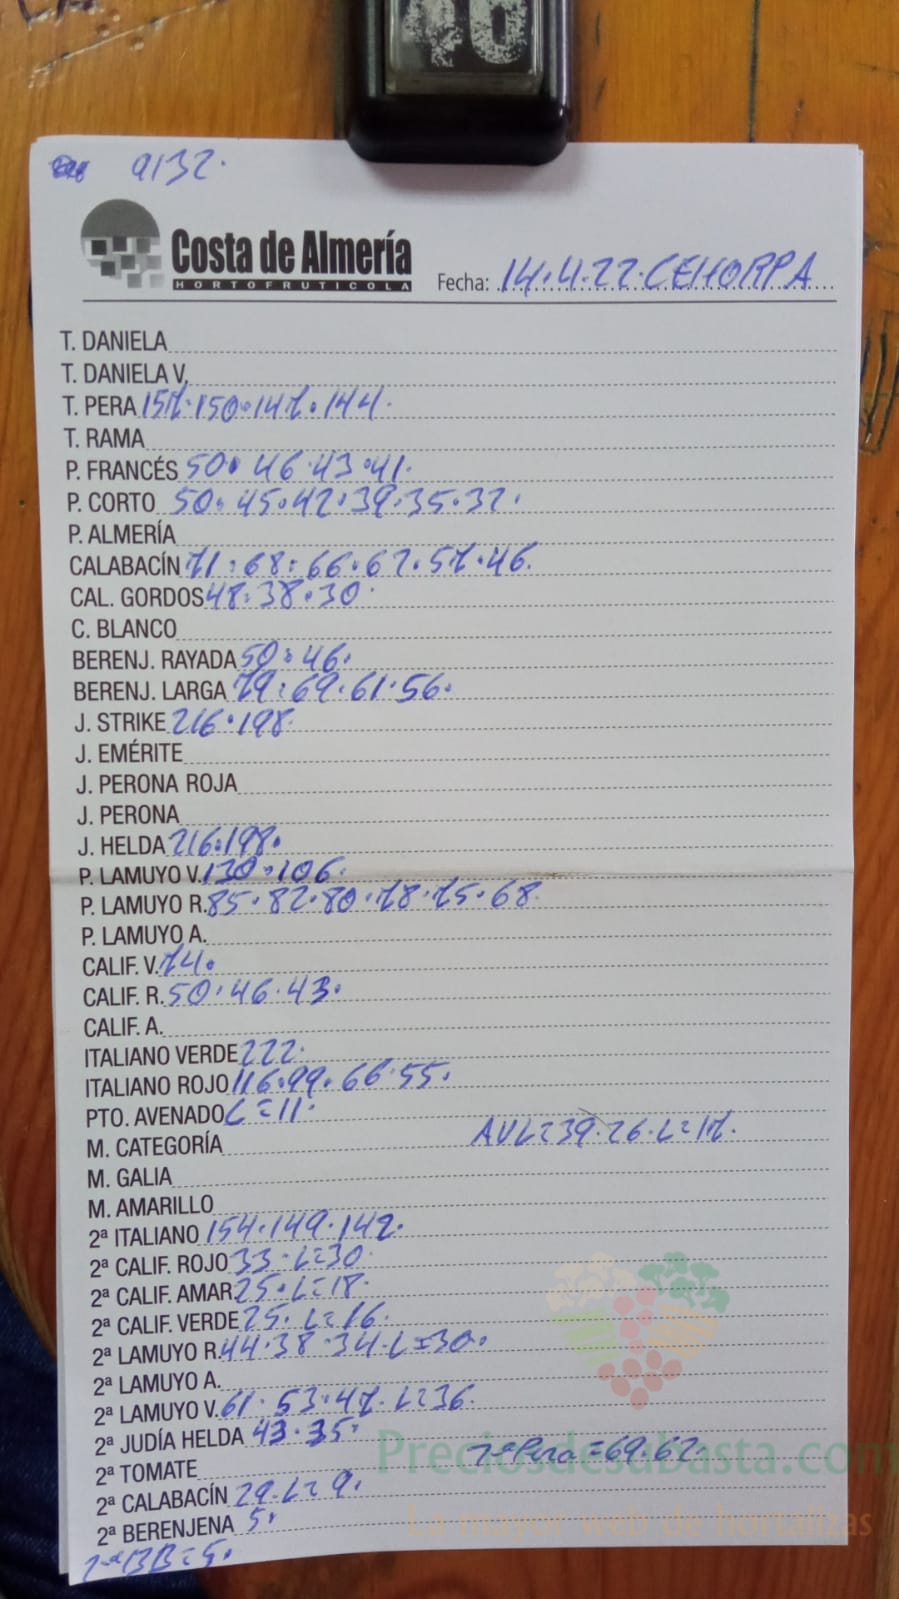 46
9132.
Costa de Almería
HORTOFRUTICOLA
Fecha: 14.4.22.CEHORPA
T. DANIELA
T. DANIELA V.
T. PERA 157.150.147.144.
T. RAMA
P. FRANCÉS 50.46.43.41.
P. CORTO 50.45.42.39.35.32.
P. ALMERÍA
CALABACÍN 71.68.66.62.57.46.
CAL. GORDOS 48.38.30.
C. BLANCO
BERENJ. RAYADA 50.46.
BERENJ. LARGA 79.69.61.56.
J. STRIKE 216.198.
J. EMÉRITE
J. PERONA ROJA
J. PERONA
J. HELDA 216.198.
P. LAMUYO V. 130.106.
P. LAMUYO R. 85.82.80.78.75.68.
P. LAMUYO A.
CALIF. V. 74.
CALIF. R. 50.46.43.
CALIF. A.
ITALIANO VERDE 222.
ITALIANO ROJO 116.99.66.55.
PTO. AVENADO L=11.
M. CATEGORÍA AVL=39.26.L=17.
M. GALIA
M. AMARILLO
2ª ITALIANO 154.149.142.
2ª CALIF. ROJO 33.L=30.
2ª CALIF. AMAR 25.L=18.
2ª CALIF. VERDE 25.L=16.
2ª LAMUYO R. 44.38.34.L=30.
2ª LAMUYO A.
2ª LAMUYO V. 61.53.47.L=36.
2ª JUDÍA HELDA 43.35.
2ª TOMATE 2ªPera=69.62.
Preciosdesubasta.com
2ª CALABACÍN 29.L=9.
La mayor web de hortalizas
2ª BERENJENA 5.
2ªBB=5.